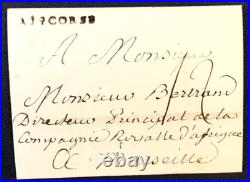 AJACCORSE
A Monsieur
Monsieur Bertrand
Directeur Principal de la
Compagnie Royalle d'afrique
A Marseille